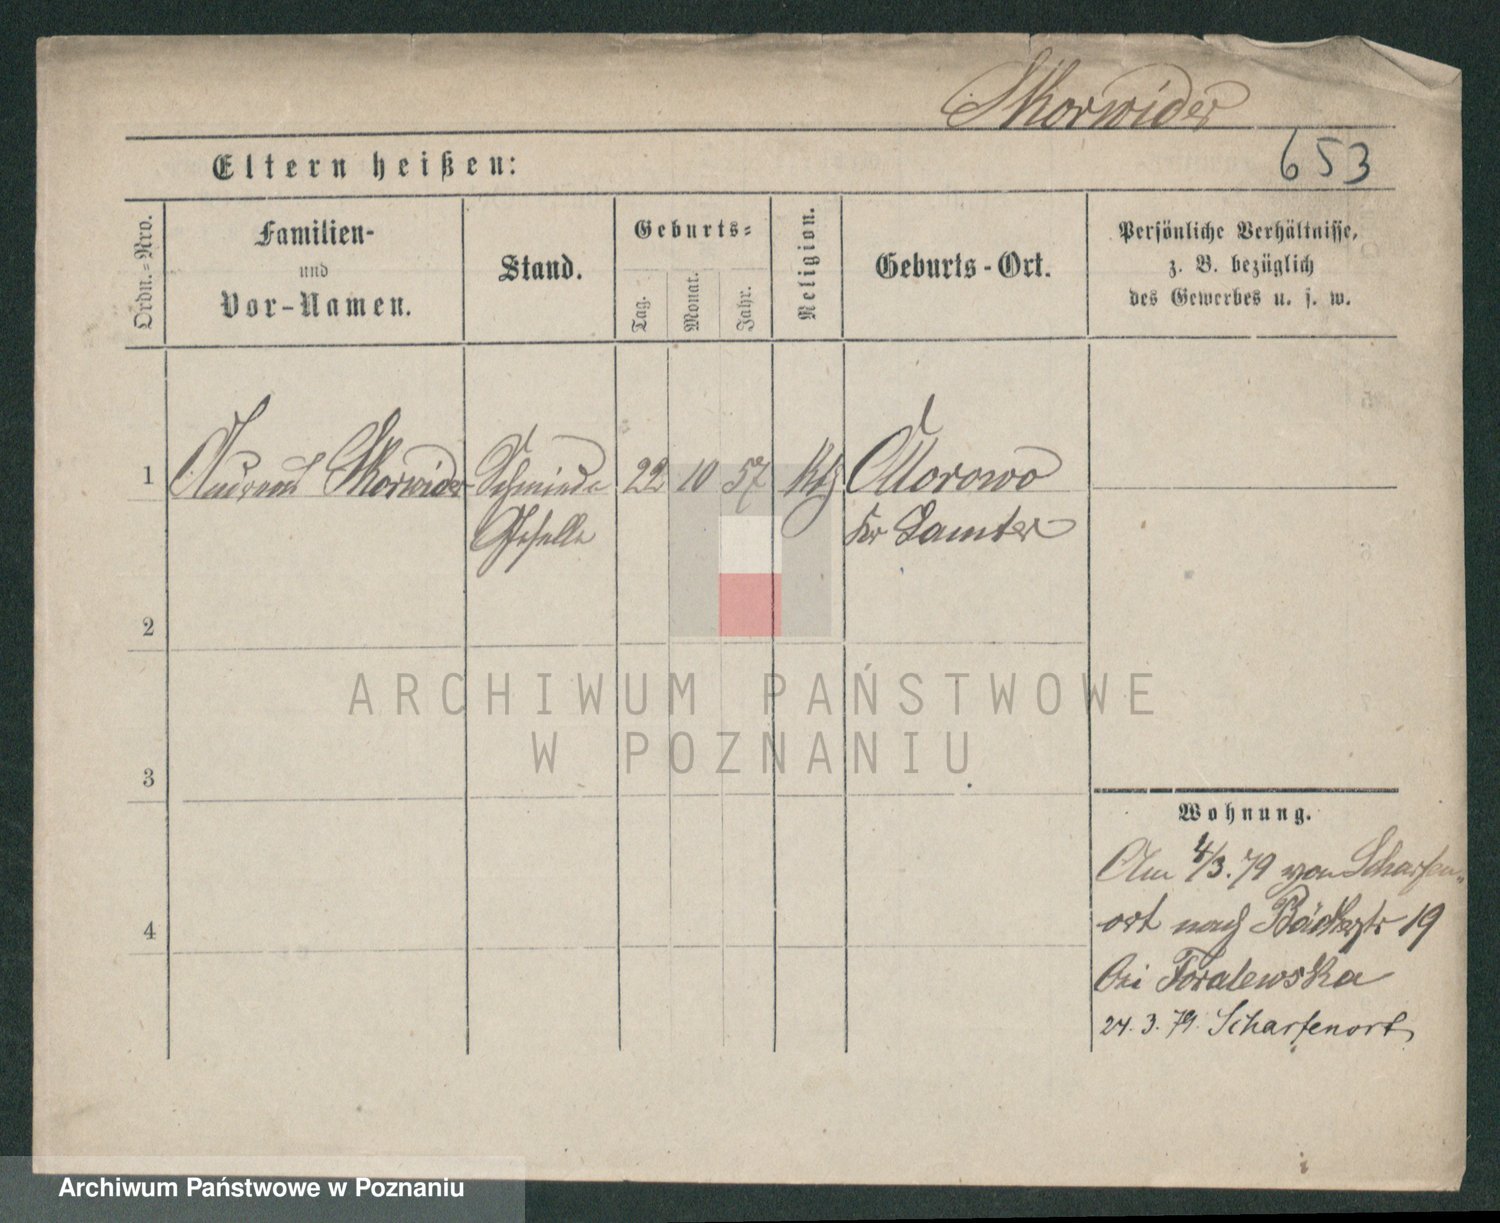 Skorwider
Eltern heißen:
653
Ordn.=Nro.
Familien-
und
Vor-Namen.
Stand.
Geburts=
Tag.
Monat.
Jahr.
Religion.
Geburts-Ort.
Persönliche Verhältnisse,
z. B. bezüglich
des Gewerbes u. s. w.
1 Andreas Skorwider Schmiede 22 10 57 kth Ottorowo
Geselle Kr Samter
2
ARCHIWUM PAŃSTWOWE
W POZNANIU
3
Wohnung.
Am 4/3. 79 von Scharfen-
4 ort nach Bäckerstr 19
bei Toralewska
24. 3. 79. Scharfenort
Archiwum Państwowe w Poznaniu